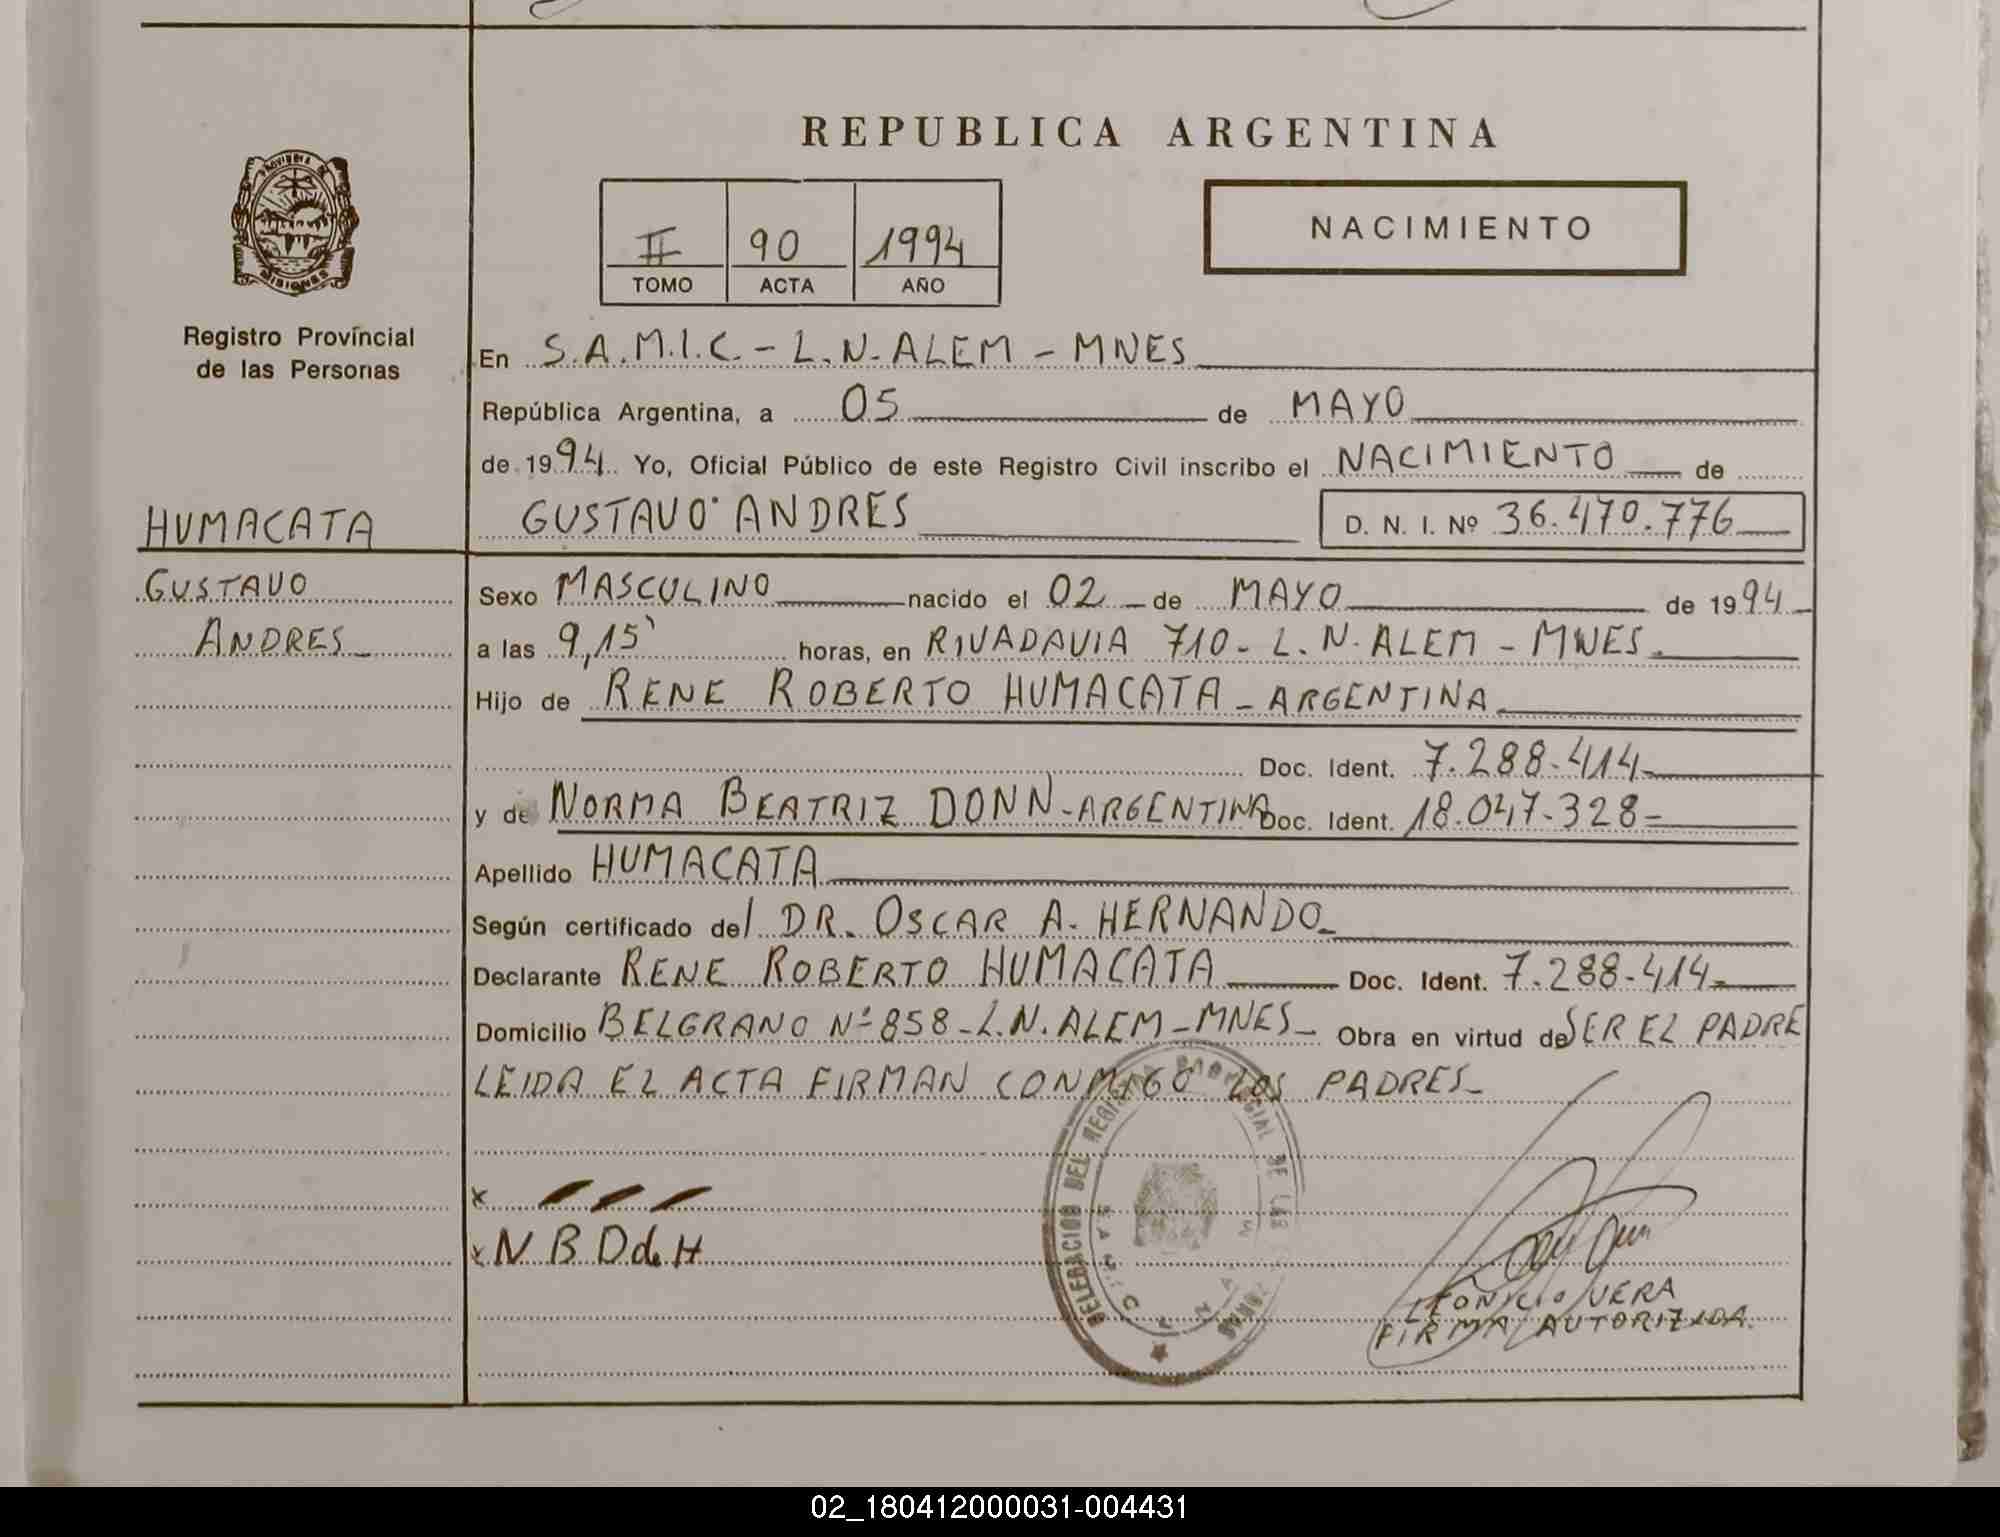 REPUBLICA ARGENTINA
PROVINCIA DE
MISIONES
Registro Provincial
de las Personas
II 90 1994
TOMO ACTA AÑO
NACIMIENTO
En S.A.M.I.C. - L.N. ALEM - MNES
República Argentina, a 05 de MAYO
de 1994 Yo, Oficial Público de este Registro Civil inscribo el NACIMIENTO de
HUMACATA
GUSTAVO ANDRES D. N. I. Nº 36.470.776
GUSTAVO
ANDRES
Sexo MASCULINO nacido el 02 de MAYO de 1994
a las 9,15' horas, en RIVADAVIA 710 - L.N. ALEM - MNES.
Hijo de RENE ROBERTO HUMACATA - ARGENTINA
Doc. Ident. 7.288.414
y de NORMA BEATRIZ DONN - ARGENTINA Doc. Ident. 18.047.328 -
Apellido HUMACATA
Según certificado del DR. OSCAR A. HERNANDO
Declarante RENE ROBERTO HUMACATA Doc. Ident. 7.288.414
Domicilio BELGRANO Nº 858 - L.N. ALEM - MNES Obra en virtud de SER EL PADRE
LEIDA EL ACTA FIRMAN CONMIGO LOS PADRES
x
x N B D de H
DELEGACION DEL REGISTRO PROVINCIAL DE LAS
LEONICIO VERA
FIRMA AUTORIZADA.
02_180412000031-004431